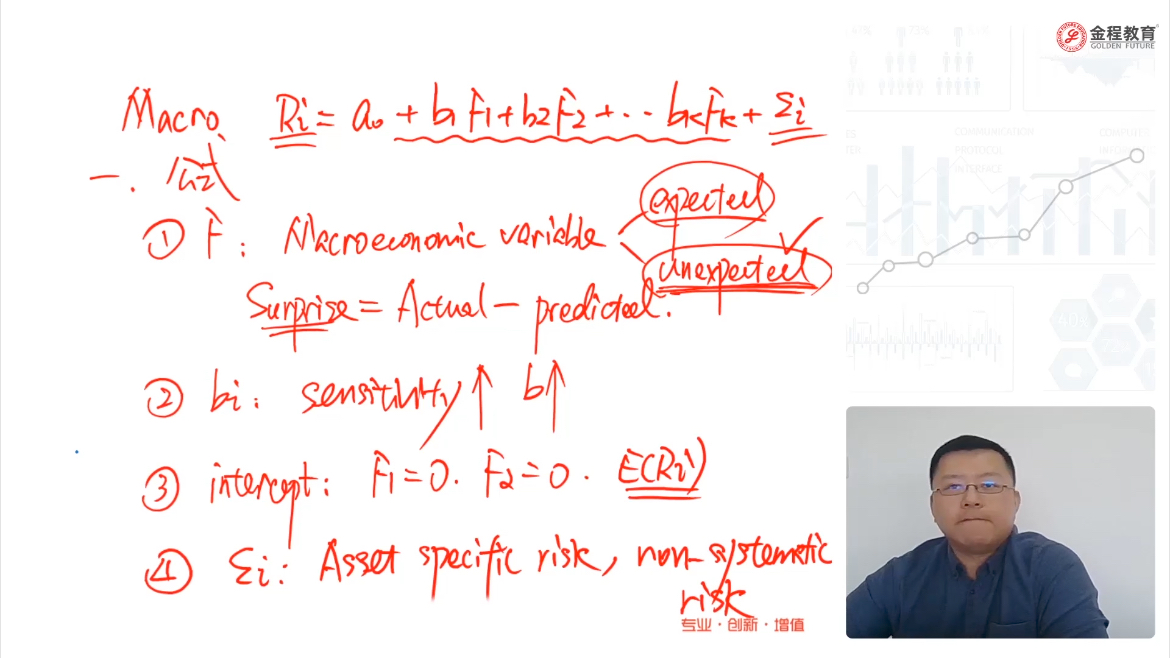 金程教育
GOLDEN FUTURE
Macro. Ri = a₀ + b₁F̃₁ + b₂F̃₂ + ... bₖF̃ₖ + Σi
一. 公式
① F̃: Macroeconomic variable
expected
unexpected ✓
Surprise = Actual - predicted.
② bi: sensitivity↑ b↑
③ intercept: F̃₁=0. F̃₂=0. E(Ri)
④ Σi: Asset specific risk, non-systematic
risk
专业·创新·增值
COMMUNICATION
PROTOCOL
INTERFACE